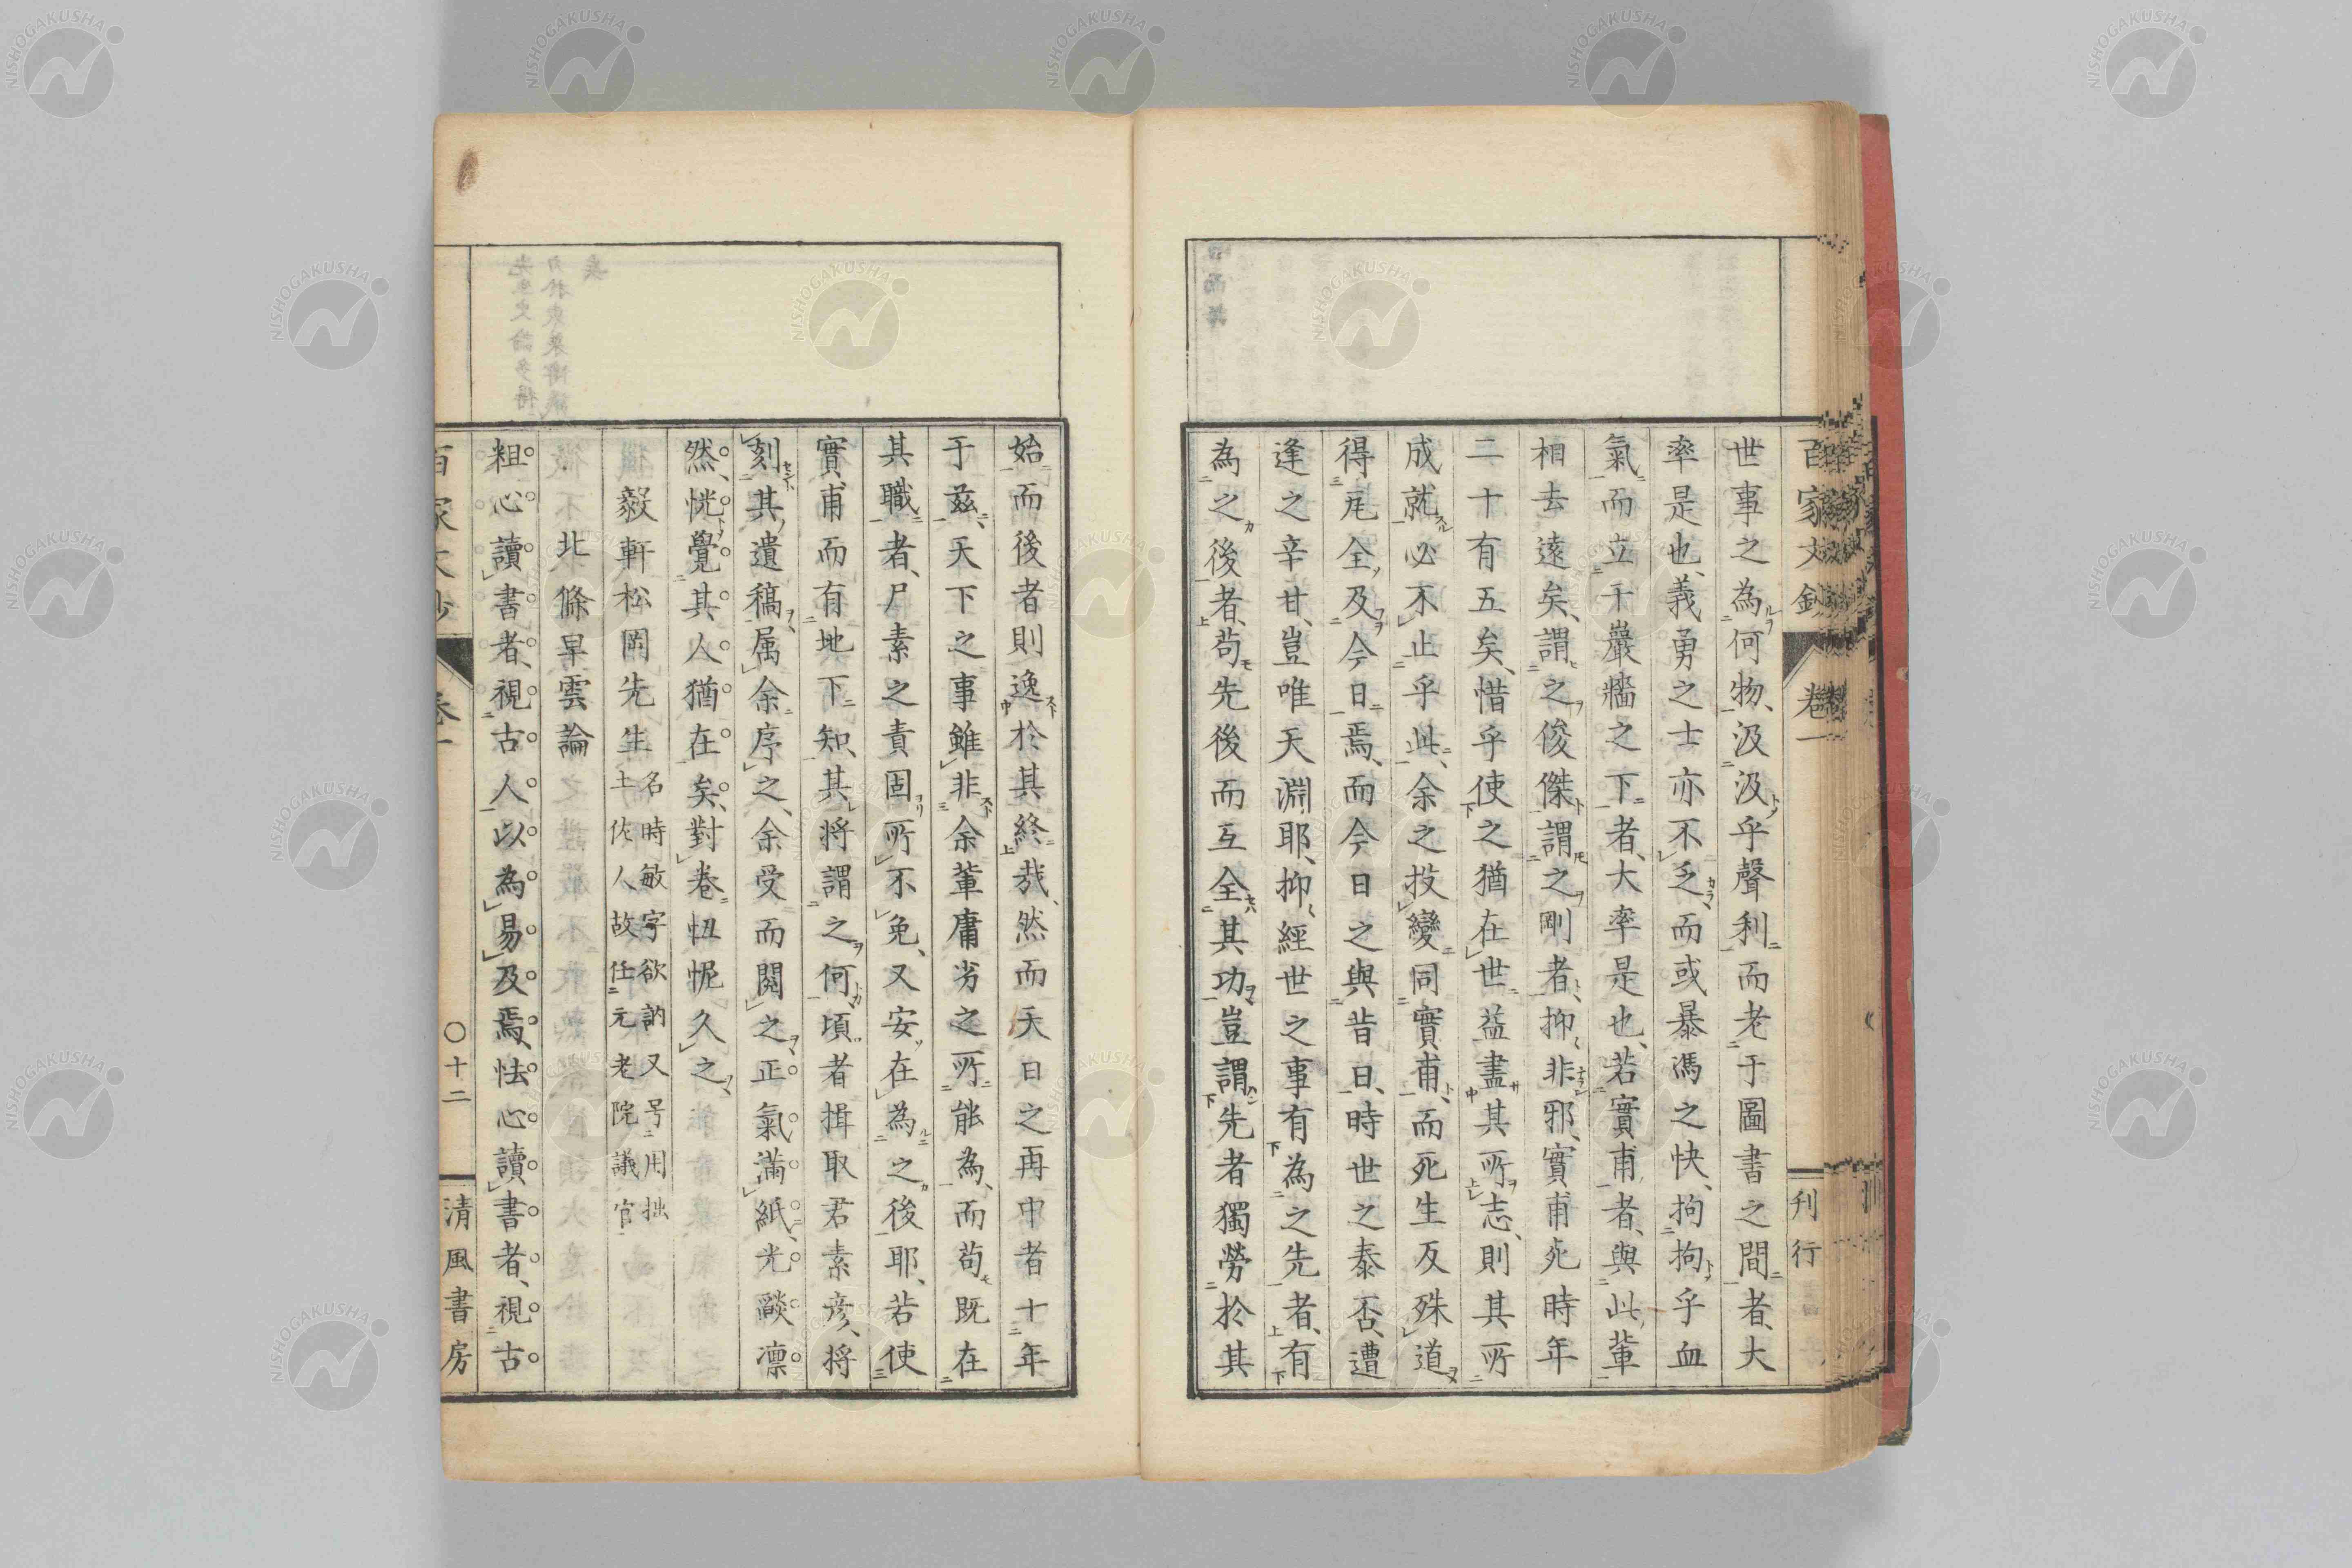 百家文鈔 卷一 刊行
世事之為何物、汲汲乎聲利而老于圖書之間者、大
率是也、義勇之士亦不乏、而或暴馮之快、拘拘乎血
氣而立于巖牆之下者、大率是也、若實甫者、與此輩
相去遠矣、謂之俊傑謂之剛者、抑非邪、實甫死時年
二十有五矣、惜乎使之猶在世益盡其所志、則其所
成就必不止乎此、余之投變同實甫、而死生反殊道
得瓦全及今日焉、而今日之與昔日、時世之泰否、遭
逢之辛甘、豈唯天淵耶、抑經世之事有為之先者、有
為之後者、苟先後而互全其功豈謂先者獨勞於其
始而後者則逸於其終哉、然而天日之再中者十年
于茲、天下之事雖非余輩庸劣之所能為、而苟既在
其職者、尸素之責固所不免、又安在為之後耶、若使
實甫而有地下知、其將謂之何頃者揖取君素彥、將
刻其遺稿、属余序之、余受而閱之正氣滿紙、光燄凛
然、恍覺其人猶在矣、對卷忸怩久之、
毅軒松岡先生 名時敏字欲訥又号用拙
土佐人故任元老院議官
北條早雲論
粗心讀書者、視古人以為易及焉、怯心讀書者、視古
百家文鈔 卷一 〇十二 清風書房